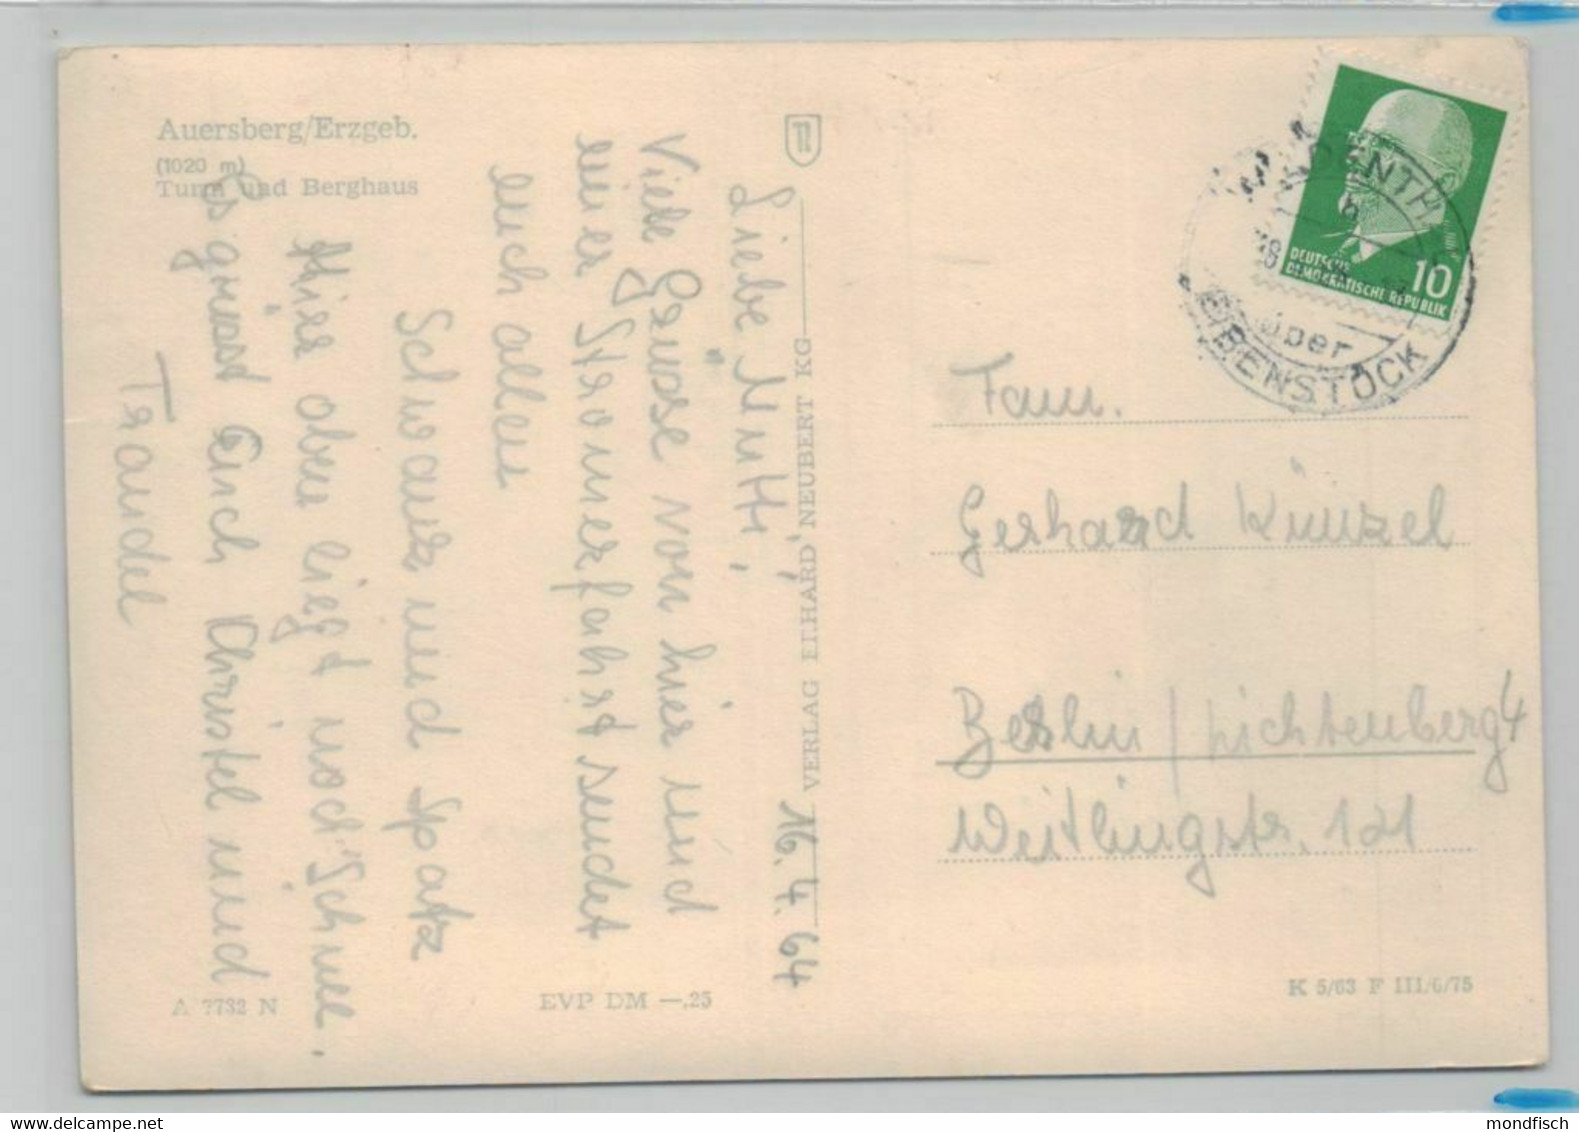 Auersberg/Erzgeb.
(1020 m)
Turm und Berghaus
16.4.64
Liebe Mutti,
Viele Grüsse von hier und
einer Stromerfahrt sendet
euch allen
Schwanz und Spatz
Hier oben liegt noch Schnee.
Es grüsst Euch Christel und
Traudel
VERLAG ERHARD NEUBERT KG
A 7732 N
EVP DM —,25
DEUTSCHE
DEMOKRATISCHE REPUBLIK
10
über
EIBENSTOCK
Fam.
Gerhard Künzel
Berlin / Lichtenberg 4
Weitlingstr. 121
K 5/63 F III/6/75
mondfisch